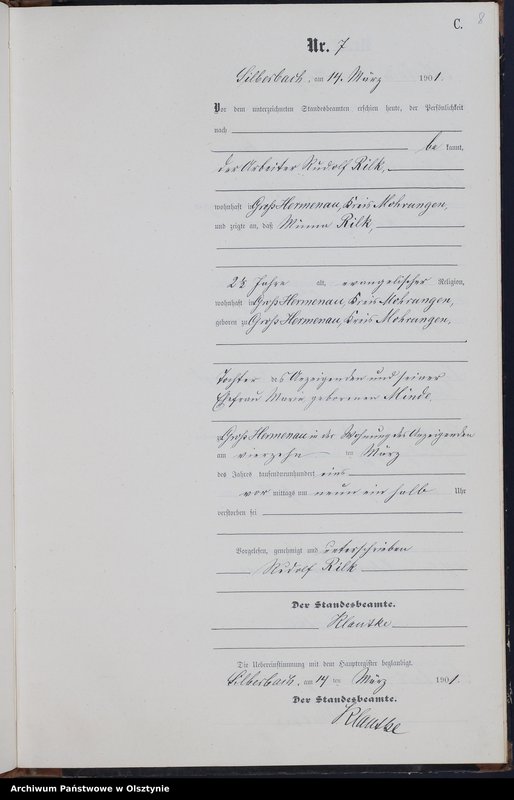 C.
8
Nr. 7
Silberbach, am 14. März 1901.
Vor dem unterzeichneten Standesbeamten erschien heute, der Persönlichkeit
nach
be kannt,
der Arbeiter Rudolf Rilk,
wohnhaft in Groß Hermenau, Kreis Mohrungen,
und zeigte an, daß Minna Rilk,
Jahre alt, evangelischer Religion,
wohnhaft in Groß Hermenau, Kreis Mohrungen,
geboren zu Groß Hermenau, Kreis Mohrungen,
Tochter des Anzeigenden und seiner
Ehefrau Marie geborenen Minde,
Groß Hermenau, in der Wohnung des Anzeigenden
am vierzehn ten März
des Jahres tausendneunhundert eins
vor mittags um neun ein halb Uhr
verstorben sei
Vorgelesen, genehmigt und unterschrieben
Rudolf Rilk
Der Standesbeamte.
Klautke
Die Uebereinstimmung mit dem Hauptregister beglaubigt.
Silberbach, am 14 ten März 1901.
Der Standesbeamte.
Klautke
Archiwum Państwowe w Olsztynie